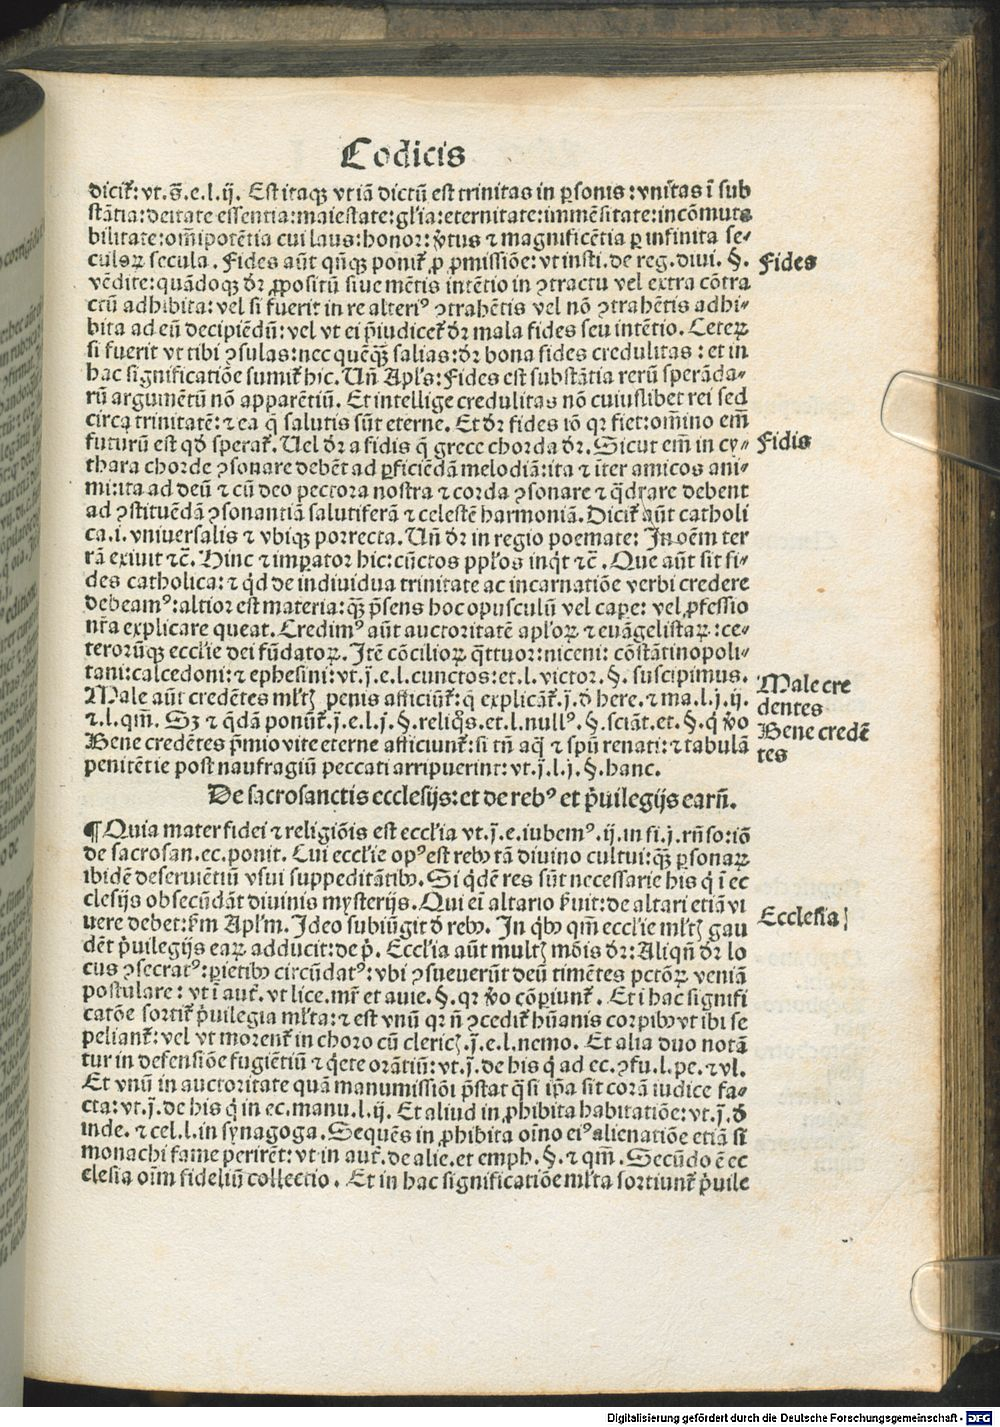 Codicis
dicit᷑: vt.s̄.e.l.ij. Est itaqꝫ vt iā dictū est trinitas in ꝑsonis: vnitas ī sub
stātia: deitate essentia: maiestate: gl'ia: eternitate: immēsitate: incōmuta
bilitate: om̄ipotētia cui laus: honor: v̓tus ⁊ magnificētia ꝑ infinita se-
culoꝝ secula. Fides aūt qn̄qꝫ ponit᷑ ꝓ ꝓmissiōe: vt insti. de reg. diui. §.
Fides
vēdite: quādoqꝫ dr̄ ꝓpositū siue mētis intētio in ꝯtractu vel extra cōtra
ctū adhibita: vel si fuerit in re alteriꝰ ꝯtrahētis vel nō ꝯtrahētis adhi-
bita ad eū decipiēdū: vel vt ei p̄iudicet᷑ dr̄ mala fides seu intētio. Ceteꝝ
si fuerit vt tibi ꝯsulas: nec quēqꝫ̄ falias: dr̄ bona fides credulitas: et in
hac significatiōe sumit᷑ hic. Un̄ Apl's: Fides est substātia rerū sperāda-
rū argumētū nō apparētiū. Et intellige credulitas nō cuiuslibet rei sed
circa trinitatē: ⁊ ea q̄ salutis sūt eterne. Et dr̄ fides iō qr fiet: om̄ino em̄
futurū est qd̓ sperat᷑. Uel dr̄ a fidis q̄ grece chorda dr̄. Sicut em̄ in cy-
Fidis
thara chorde ꝯsonare debēt ad ꝑficiēdā melodiā: ita ⁊ īter amicos ani-
mi: ita ad deū ⁊ cū deo pectora nostra ⁊ corda ꝯsonare ⁊ q̄drare debent
ad ꝯstituēdā ꝯsonantiā salutiferā ⁊ celestē harmoniā. Dicit᷑ aūt catholi
ca.i. vniuersalis ⁊ vbiqꝫ porrecta. Un̄ dr̄ in regio poemate: In oēm ter
rā exiuit ⁊c̄. Hinc ⁊ imꝑator hic: cūctos pp̄los inq̓t ⁊c̄. Que aūt sit fi-
des catholica: ⁊ q̓d de indiuidua trinitate ac incarnatiōe verbi credere
debeamꝰ: altior est materia: qꝫ̄ p̄sens hoc opusculū vel capet vel ꝓfessio
nr̄a explicare queat. Credimꝰ aūt auctoritatē apl'oꝝ ⁊ euāgelistaꝝ: ce-
terorūqꝫ eccl'ie dei fūdatoꝝ. Itē cōcilioꝝ q̄ttuor: niceni: cōstātinopoli-
tani: calcedoni: ⁊ ephesini: vt.j̄.e.l. cunctos: et.l. victor. §. suscipimus.
Male aūt credētes ml'tꝭ penis afficiūt᷑: q̄ explicāt᷑.j̄.d̓ here. ⁊ ma.l.j.ij.
Male cre
dentes
⁊.l. qm̄. Sꝫ ⁊ q̄dā ponūt᷑.j̄.e.l.j. §. reliq̓s. et.l. nullꝰ. §. sciāt. et. §. q̓ v̓o
Bene credētes p̄mio vite eterne afficiunt᷑: si tn̄ aq̄ ⁊ spū renati: ⁊ tabulā
Bene credē
tes
penitētie post naufragiū peccati arripuerint: vt.j̄.l.j. §. hanc.
De sacrosanctis ecclesijs: et de rebꝰ et p̓uilegijs earū.
¶ Quia mater fidei ⁊ religiōis est eccl'ia vt.j̄.e. iubemꝰ.ij. in fi.j. rn̄so: iō
de sacrosan. ec. ponit. Cui eccl'ie opꝰ est rebꝫ tā diuino cultui: qꝫ̄ ꝑsonaꝝ
ibidē deseruiētiū vsui suppeditātibꝫ. Si q̓dē res sūt necessarie his q̓ ī ec
clesijs obsecūdāt diuinis mysterijs. Qui ei̅ altario ẜuit: de altari etiā vi
uere debet: ẜm Apl'm. Ideo subiūgit d̓ rebꝫ. In q̓bꝫ qm̄ eccl'ie ml'tꝭ gau
Ecclesia
dēt p̓uilegijs eaꝝ adducit: de p̓. Eccl'ia aūt multꝭ mōis dr̄: Aliqn̄ dr̄ lo
cus ꝯsecratꝰ: ꝑietibꝫ circūdatꝰ: vbi ꝯsueuerūt deū timētes pctōꝝ veniā
postulare: vt ī aut᷑. vt lice. mr̄ et auie. §. qr v̓o cōpiunt᷑. Et ī hac signifi
catōe sortit᷑ p̓uilegia ml'ta: ⁊ est vnū qr n̄ ꝯcedit᷑ hūanis corpibꝫ vt ibi se
peliant᷑: vel vt morent᷑ in choro cū clericꝭ.j̄.e.l. nemo. Et alia duo notā
tur in defensiōe fugiētiū ⁊ q̓ete orātiū: vt.j̄. de his q̓ ad ec. ꝯfu.l. pe. ⁊ vl.
Et vnū in auctoritate quā manumissiōi p̄stat q̄si ip̄a sit corā iudice fa-
cta: vt.j̄. de his q̓ in ec. manu.l.ij. Et aliud in ꝓhibita habitatiōe: vt.j̄.d̓
iude. ⁊ cel.l. in synagoga. Sequēs in ꝓhibita oīno eiꝰ alienatiōe etiā si
monachi fame perirēt: vt in aut᷑. de alie. et emph. §. ⁊ qm̄. Secūdo ē ec
clesia oīm fideliū collectio. Et in hac significatiōe ml'ta sortiunt᷑ p̓uile
Digitalisierung gefördert durch die Deutsche Forschungsgemeinschaft - DFG